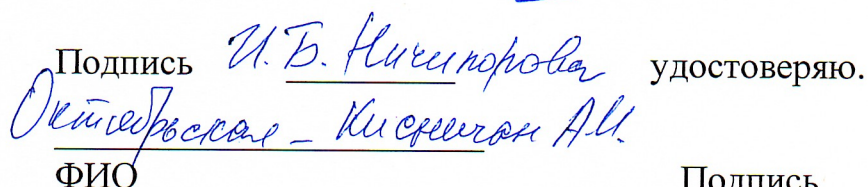 Подпись И.Б. Ничипорова удостоверяю.
Октябрьская - Кисничан А.И.
ФИО Подпись